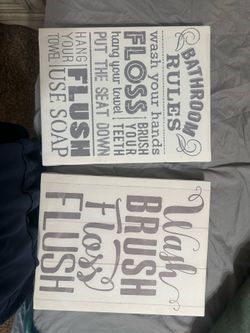 BATHROOM
RULES
wash your hands
FLOSS
BRUSH
YOUR
TEETH
hang your towel
PUT THE SEAT DOWN
HANG
YOUR
TOWEL
FLUSH
USE SOAP
Wash
BRUSH
Floss
FLUSH